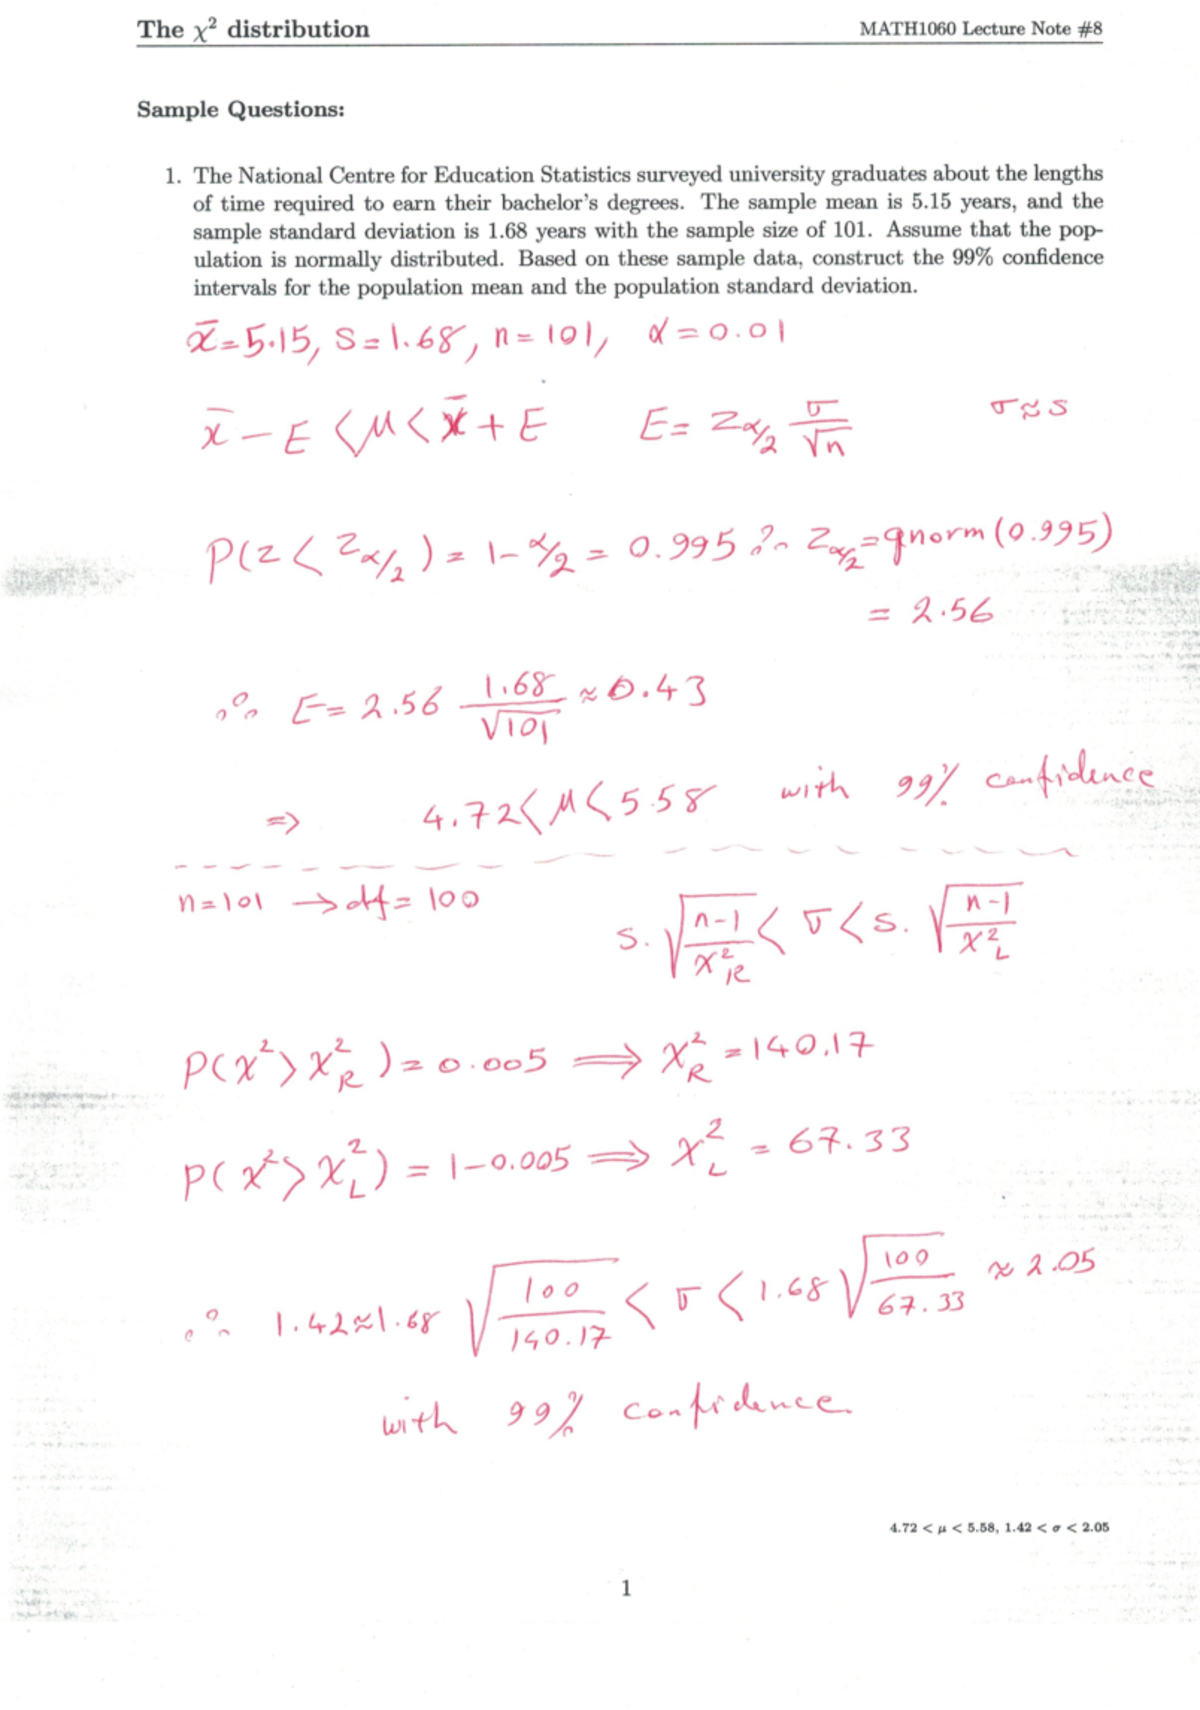 The χ² distribution MATH1060 Lecture Note #8
Sample Questions:
1. The National Centre for Education Statistics surveyed university graduates about the lengths
of time required to earn their bachelor's degrees. The sample mean is 5.15 years, and the
sample standard deviation is 1.68 years with the sample size of 101. Assume that the pop-
ulation is normally distributed. Based on these sample data, construct the 99% confidence
intervals for the population mean and the population standard deviation.
x̄=5.15, S=1.68, n=101, α=0.01
x̄-E<μ<x̄+E E= Zα/2 σ/√n σ≈s
P(z<Zα/2)=1-α/2=0.995 ∴ Zα/2=qnorm(0.995)
= 2.56
∴ E=2.56 1.68/√101 ≈0.43
=> 4.72<μ<5.58 with 99% confidence
n=101 →df=100
s.√((n-1)/χ²R)<σ<s.√((n-1)/χ²L)
P(χ²>χ²R)=0.005 ⟹ χ²R=140.17
P(χ²>χ²L)=1-0.005 ⟹ χ²L=67.33
∴ 1.42≈1.68√(100/140.17)<σ<1.68√(100/67.33) ≈2.05
with 99% confidence.
4.72 < μ < 5.58, 1.42 < σ < 2.05
1